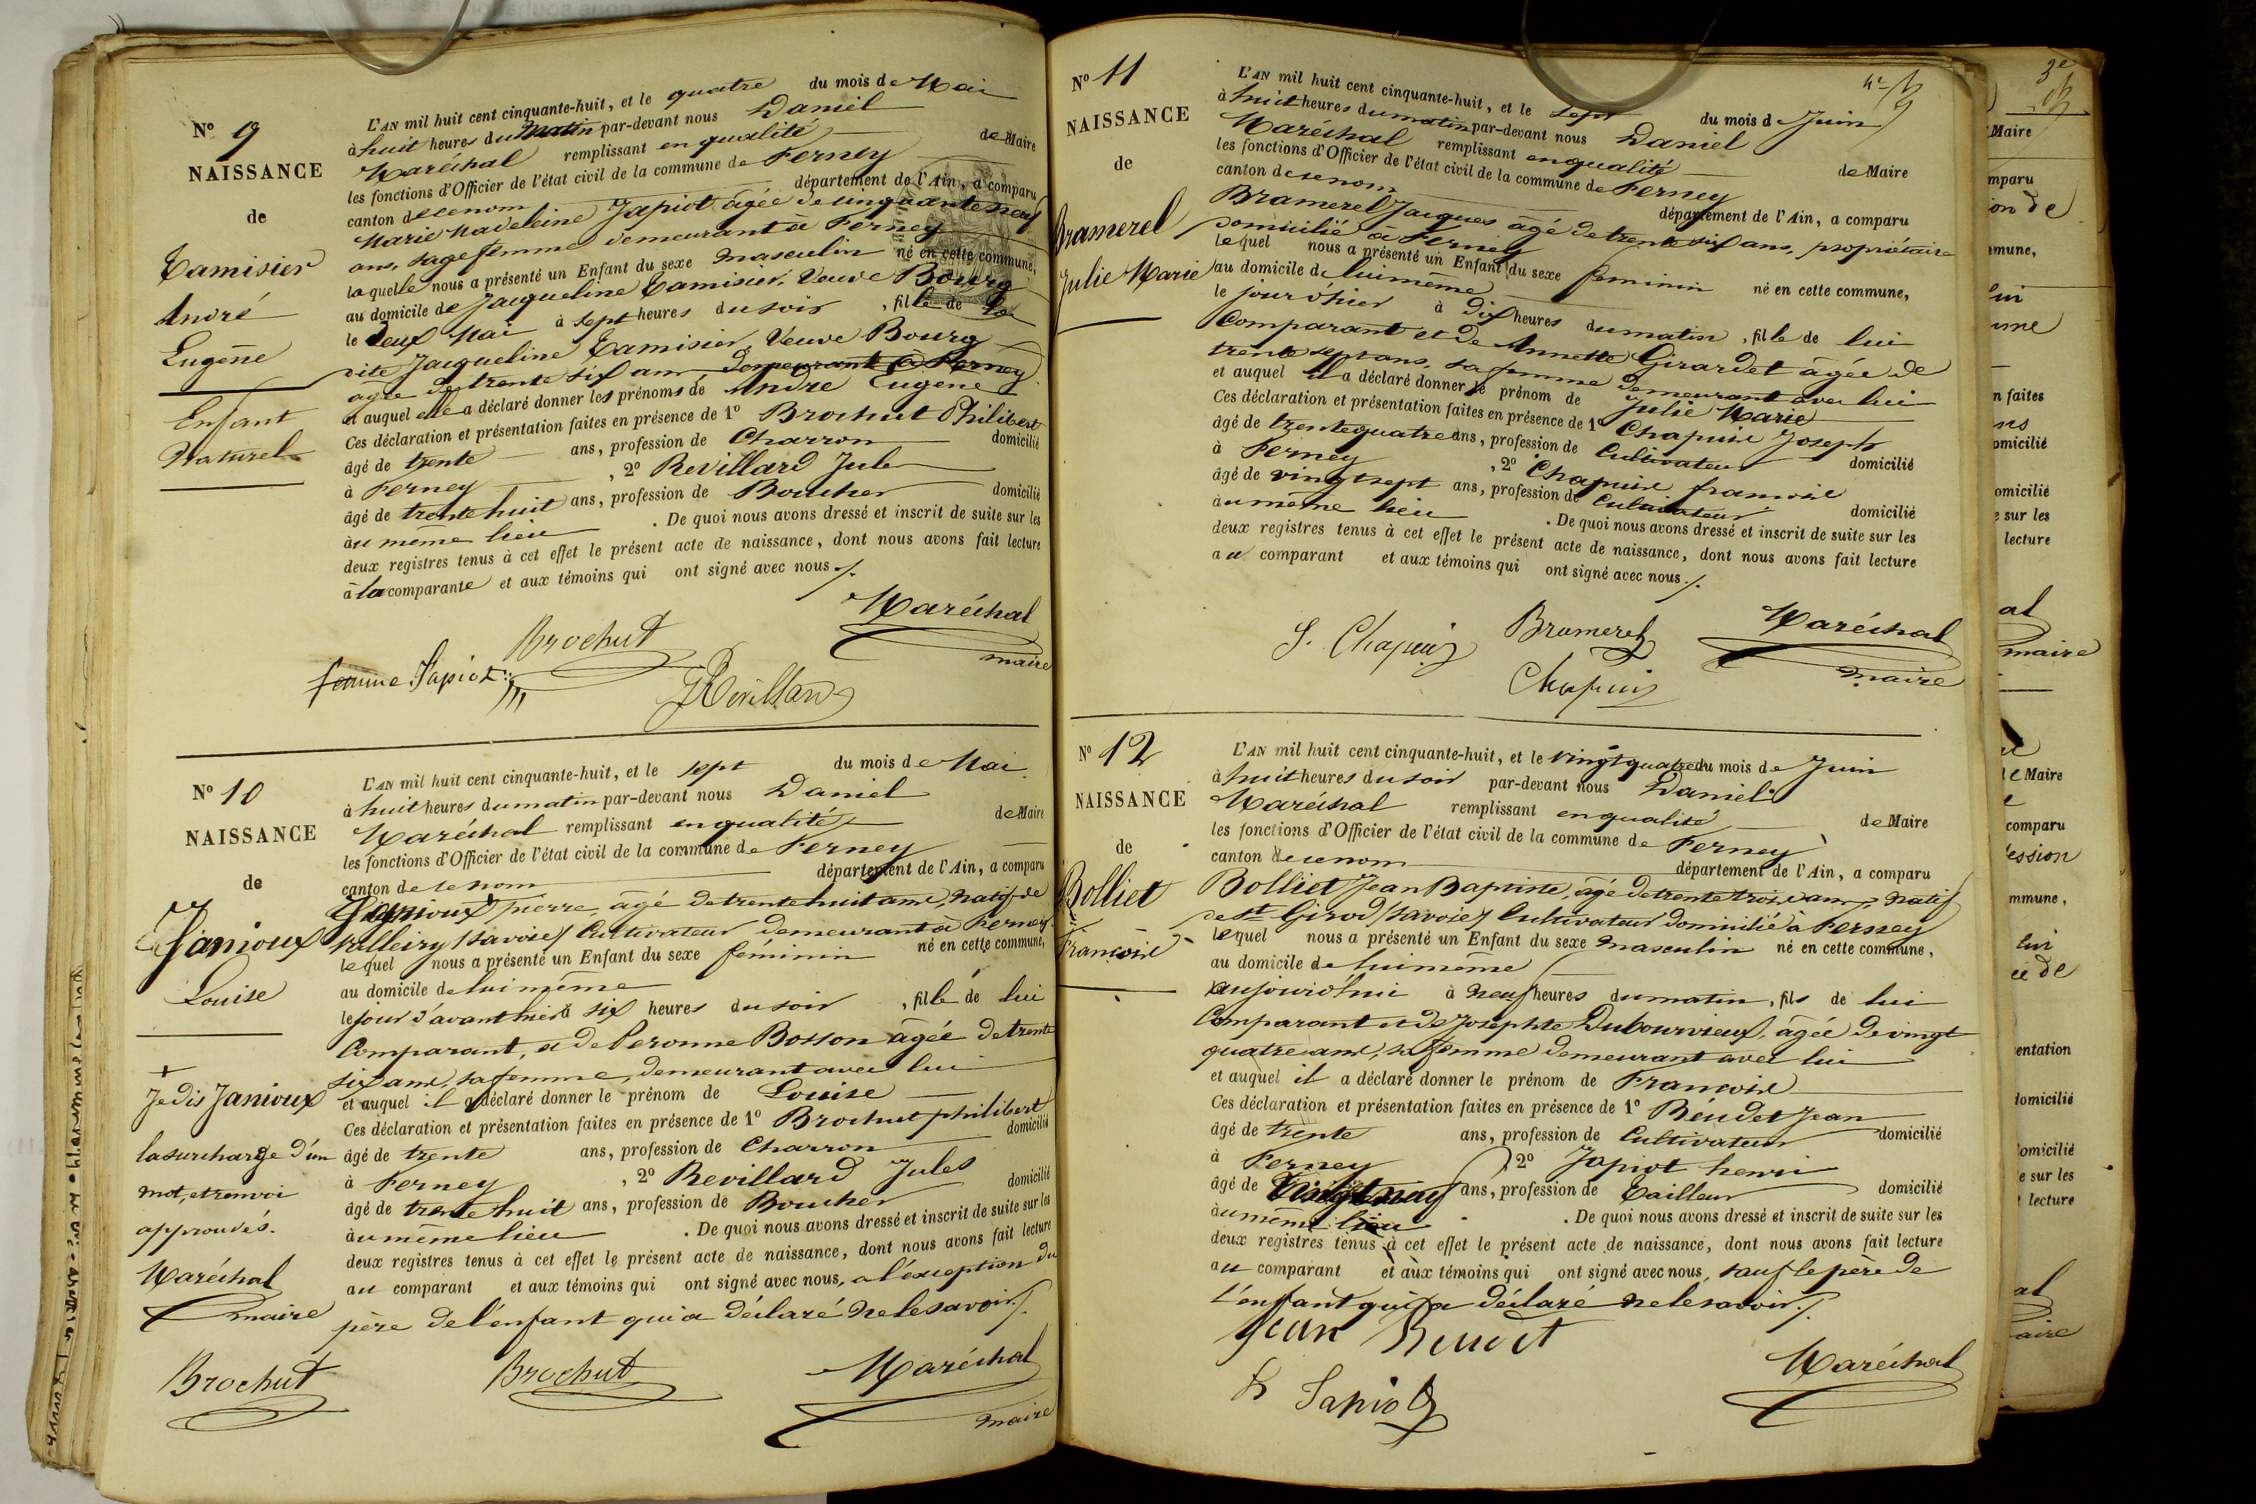 N° 9
NAISSANCE
de
Tamisier
André
Eugène
Enfant
Naturel
L'AN mil huit cent cinquante-huit, et le quatre du mois de Mai
à huit heures du matin par-devant nous Daniel
Maréchal remplissant en qualité de Maire
les fonctions d'Officier de l'état civil de la commune de Ferney
canton de ce nom département de l'Ain, a comparu
Marie Madeleine Japiot âgée de cinquante neuf
ans, sage femme demeurant à Ferney
laquelle nous a présenté un Enfant du sexe masculin né en cette commune,
au domicile de Jacqueline Tamisier, Veuve Bourg
le deux Mai à sept heures du soir, fils de la
dite Jacqueline Tamisier, Veuve Bourg
âgée de trente six ans, demeurant à Ferney
et auquel elle a déclaré donner les prénoms de André Eugène
Ces déclaration et présentation faites en présence de 1° Brochut Philibert
âgé de trente ans, profession de Charron domicilié
à Ferney, 2° Revillard Jules
âgé de trente huit ans, profession de Boucher domicilié
au même lieu. De quoi nous avons dressé et inscrit de suite sur les
deux registres tenus à cet effet le présent acte de naissance, dont nous avons fait lecture
à la comparante et aux témoins qui ont signé avec nous ./.
Maréchal
maire
Brochut
femme Japiot
J Revillard
N° 10
NAISSANCE
de
Janioux
Louise
+
Je dis Janioux
la surcharge d'un
mot, et renvoi
approuvés.
Maréchal
maire
L'AN mil huit cent cinquante-huit, et le sept du mois de Mai
à huit heures du matin par-devant nous Daniel
Maréchal remplissant en qualité de Maire
les fonctions d'Officier de l'état civil de la commune de Ferney
canton de ce nom département de l'Ain, a comparu
Janioux Pierre, âgé de trente huit ans, natif de
Valleiry (Savoie) Cultivateur demeurant à Ferney
lequel nous a présenté un Enfant du sexe féminin né en cette commune,
au domicile de lui même
le jour d'avant hier à six heures du soir, fille de lui
Comparant, et de Peronne Bosson âgée de trente
six ans, sa femme, demeurant avec lui
et auquel il a déclaré donner le prénom de Louise
Ces déclaration et présentation faites en présence de 1° Brochut philibert
âgé de trente ans, profession de Charron domicilié
à Ferney, 2° Revillard Jules
âgé de trente huit ans, profession de Boucher domicilié
au même lieu. De quoi nous avons dressé et inscrit de suite sur les
deux registres tenus à cet effet le présent acte de naissance, dont nous avons fait lecture
au comparant et aux témoins qui ont signé avec nous, a l'exception du
père de l'enfant qui a déclaré ne le savoir ./.
Brochut Brochut Maréchal
maire
N° 11
NAISSANCE
de
Bramerel
Julie Marie
L'AN mil huit cent cinquante-huit, et le sept du mois de Juin
à huit heures du matin par-devant nous Daniel
Maréchal remplissant en qualité de Maire
les fonctions d'Officier de l'état civil de la commune de Ferney
canton de ce nom département de l'Ain, a comparu
Bramerel Jacques âgé de trente six ans, propriétaire
domicilié à Ferney
lequel nous a présenté un Enfant du sexe féminin né en cette commune,
au domicile de lui même
le jour d'hier à dix heures du matin, fille de lui
Comparant et de Annette Girardet âgée de
trente sept ans, sa femme demeurant avec lui
et auquel il a déclaré donner le prénom de Julie Marie
Ces déclaration et présentation faites en présence de 1° Chapuis Joseph
âgé de trente quatre ans, profession de Cultivateur domicilié
à Ferney, 2° Chapuis francois
âgé de vingt sept ans, profession de Cultivateur domicilié
au même lieu. De quoi nous avons dressé et inscrit de suite sur les
deux registres tenus à cet effet le présent acte de naissance, dont nous avons fait lecture
au comparant et aux témoins qui ont signé avec nous ./.
J. Chapuis Bramerel Maréchal
Chapuis maire
N° 12
NAISSANCE
de
Bolliet
François
L'AN mil huit cent cinquante-huit, et le vingt quatre du mois de Juin
à huit heures du soir par-devant nous Daniel
Maréchal remplissant en qualité de Maire
les fonctions d'Officier de l'état civil de la commune de Ferney
canton de ce nom département de l'Ain, a comparu
Bolliet Jean Baptiste, âgé de trente trois ans, natif
de St Girod (Savoie) Cultivateur domicilié à Ferney
lequel nous a présenté un Enfant du sexe masculin né en cette commune,
au domicile de lui même
aujourd'hui à neuf heures du matin, fils de lui
Comparant et de Josephte Dubourvieux, âgée de vingt
quatre ans, sa femme demeurant avec lui
et auquel il a déclaré donner le prénom de Francois
Ces déclaration et présentation faites en présence de 1° Béudet Jean
âgé de trente ans, profession de Cultivateur domicilié
à Ferney, 2° Japiot henri
âgé de Vingt neuf ans, profession de Tailleur domicilié
au même lieu. De quoi nous avons dressé et inscrit de suite sur les
deux registres tenus à cet effet le présent acte de naissance, dont nous avons fait lecture
au comparant et aux témoins qui ont signé avec nous, sauf le père de
l'enfant qui a déclaré ne le savoir ./.
Jean
h Japiot
Maréchal
Maire
omparu
ion de
mmune,
lui
n faites
omicilié
omicilié
sur les
lecture
al
maire
de Maire
comparu
fession
mmune,
lui
ée de
entation
domicilié
omicilié
e sur les
lecture
al
aire